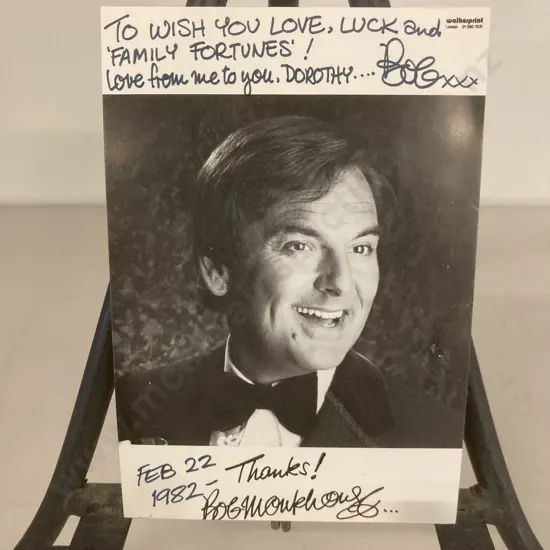 TO WISH YOU LOVE, LUCK and
'FAMILY FORTUNES'!
Love from me to you, DOROTHY.... Bob xxx
walkerprint
London
FEB 22
1982 - Thanks!
Bob Monkhouse...